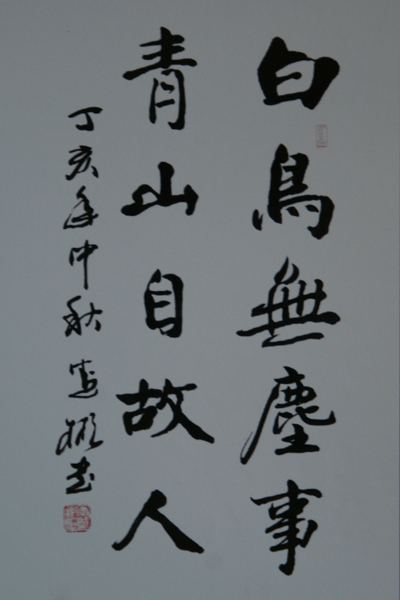 白鳥無塵事
青山自故人
丁亥年中秋